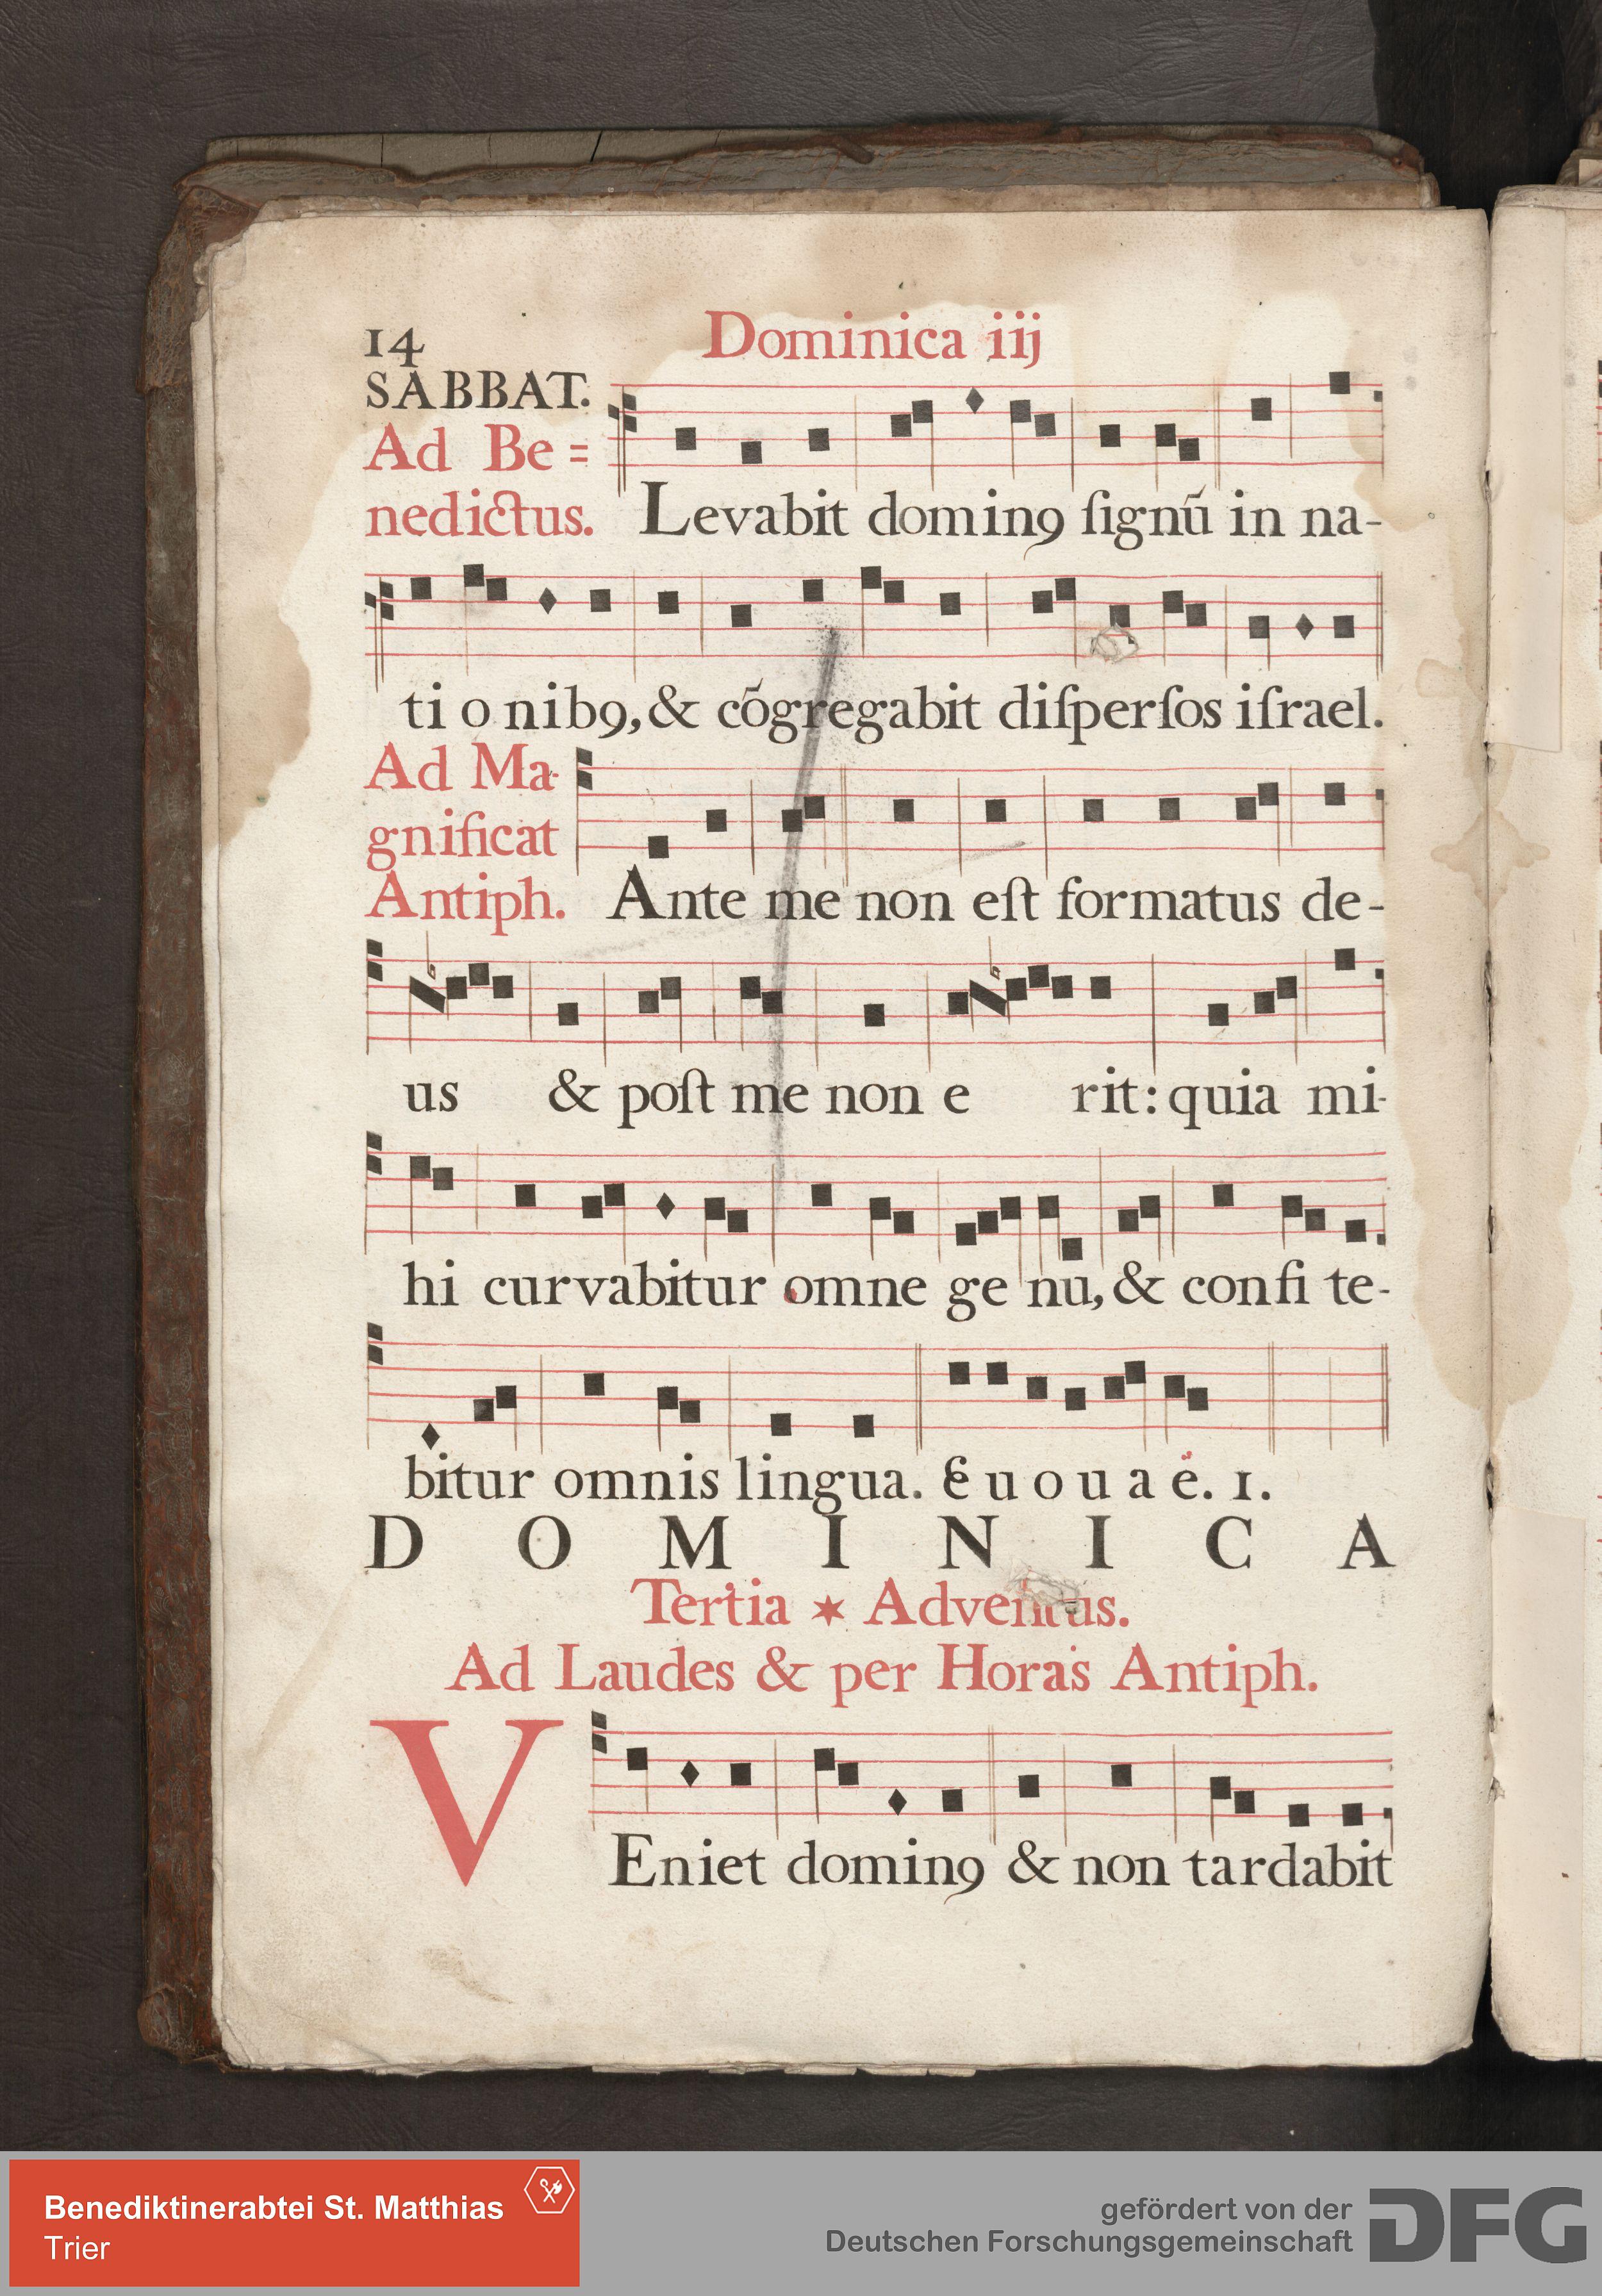 14
Dominica iij
SABBAT.
Ad Be=
nedictus. Levabit dominꝯ ſignū in na-
ti o nibꝯ, & cōgregabit diſperſos iſrael.
Ad Ma-
gnificat
Antiph. Ante me non eſt formatus de-
us & poſt me non e rit: quia mi-
hi curvabitur omne ge nu, & confi te-
bitur omnis lingua. Euouae. 1.
DOMINICA
Tertia ✶ Adventus.
Ad Laudes & per Horas Antiph.
VEniet dominꝯ & non tardabit
Benediktinerabtei St. Matthias
Trier
gefördert von der
Deutschen Forschungsgemeinschaft
DFG